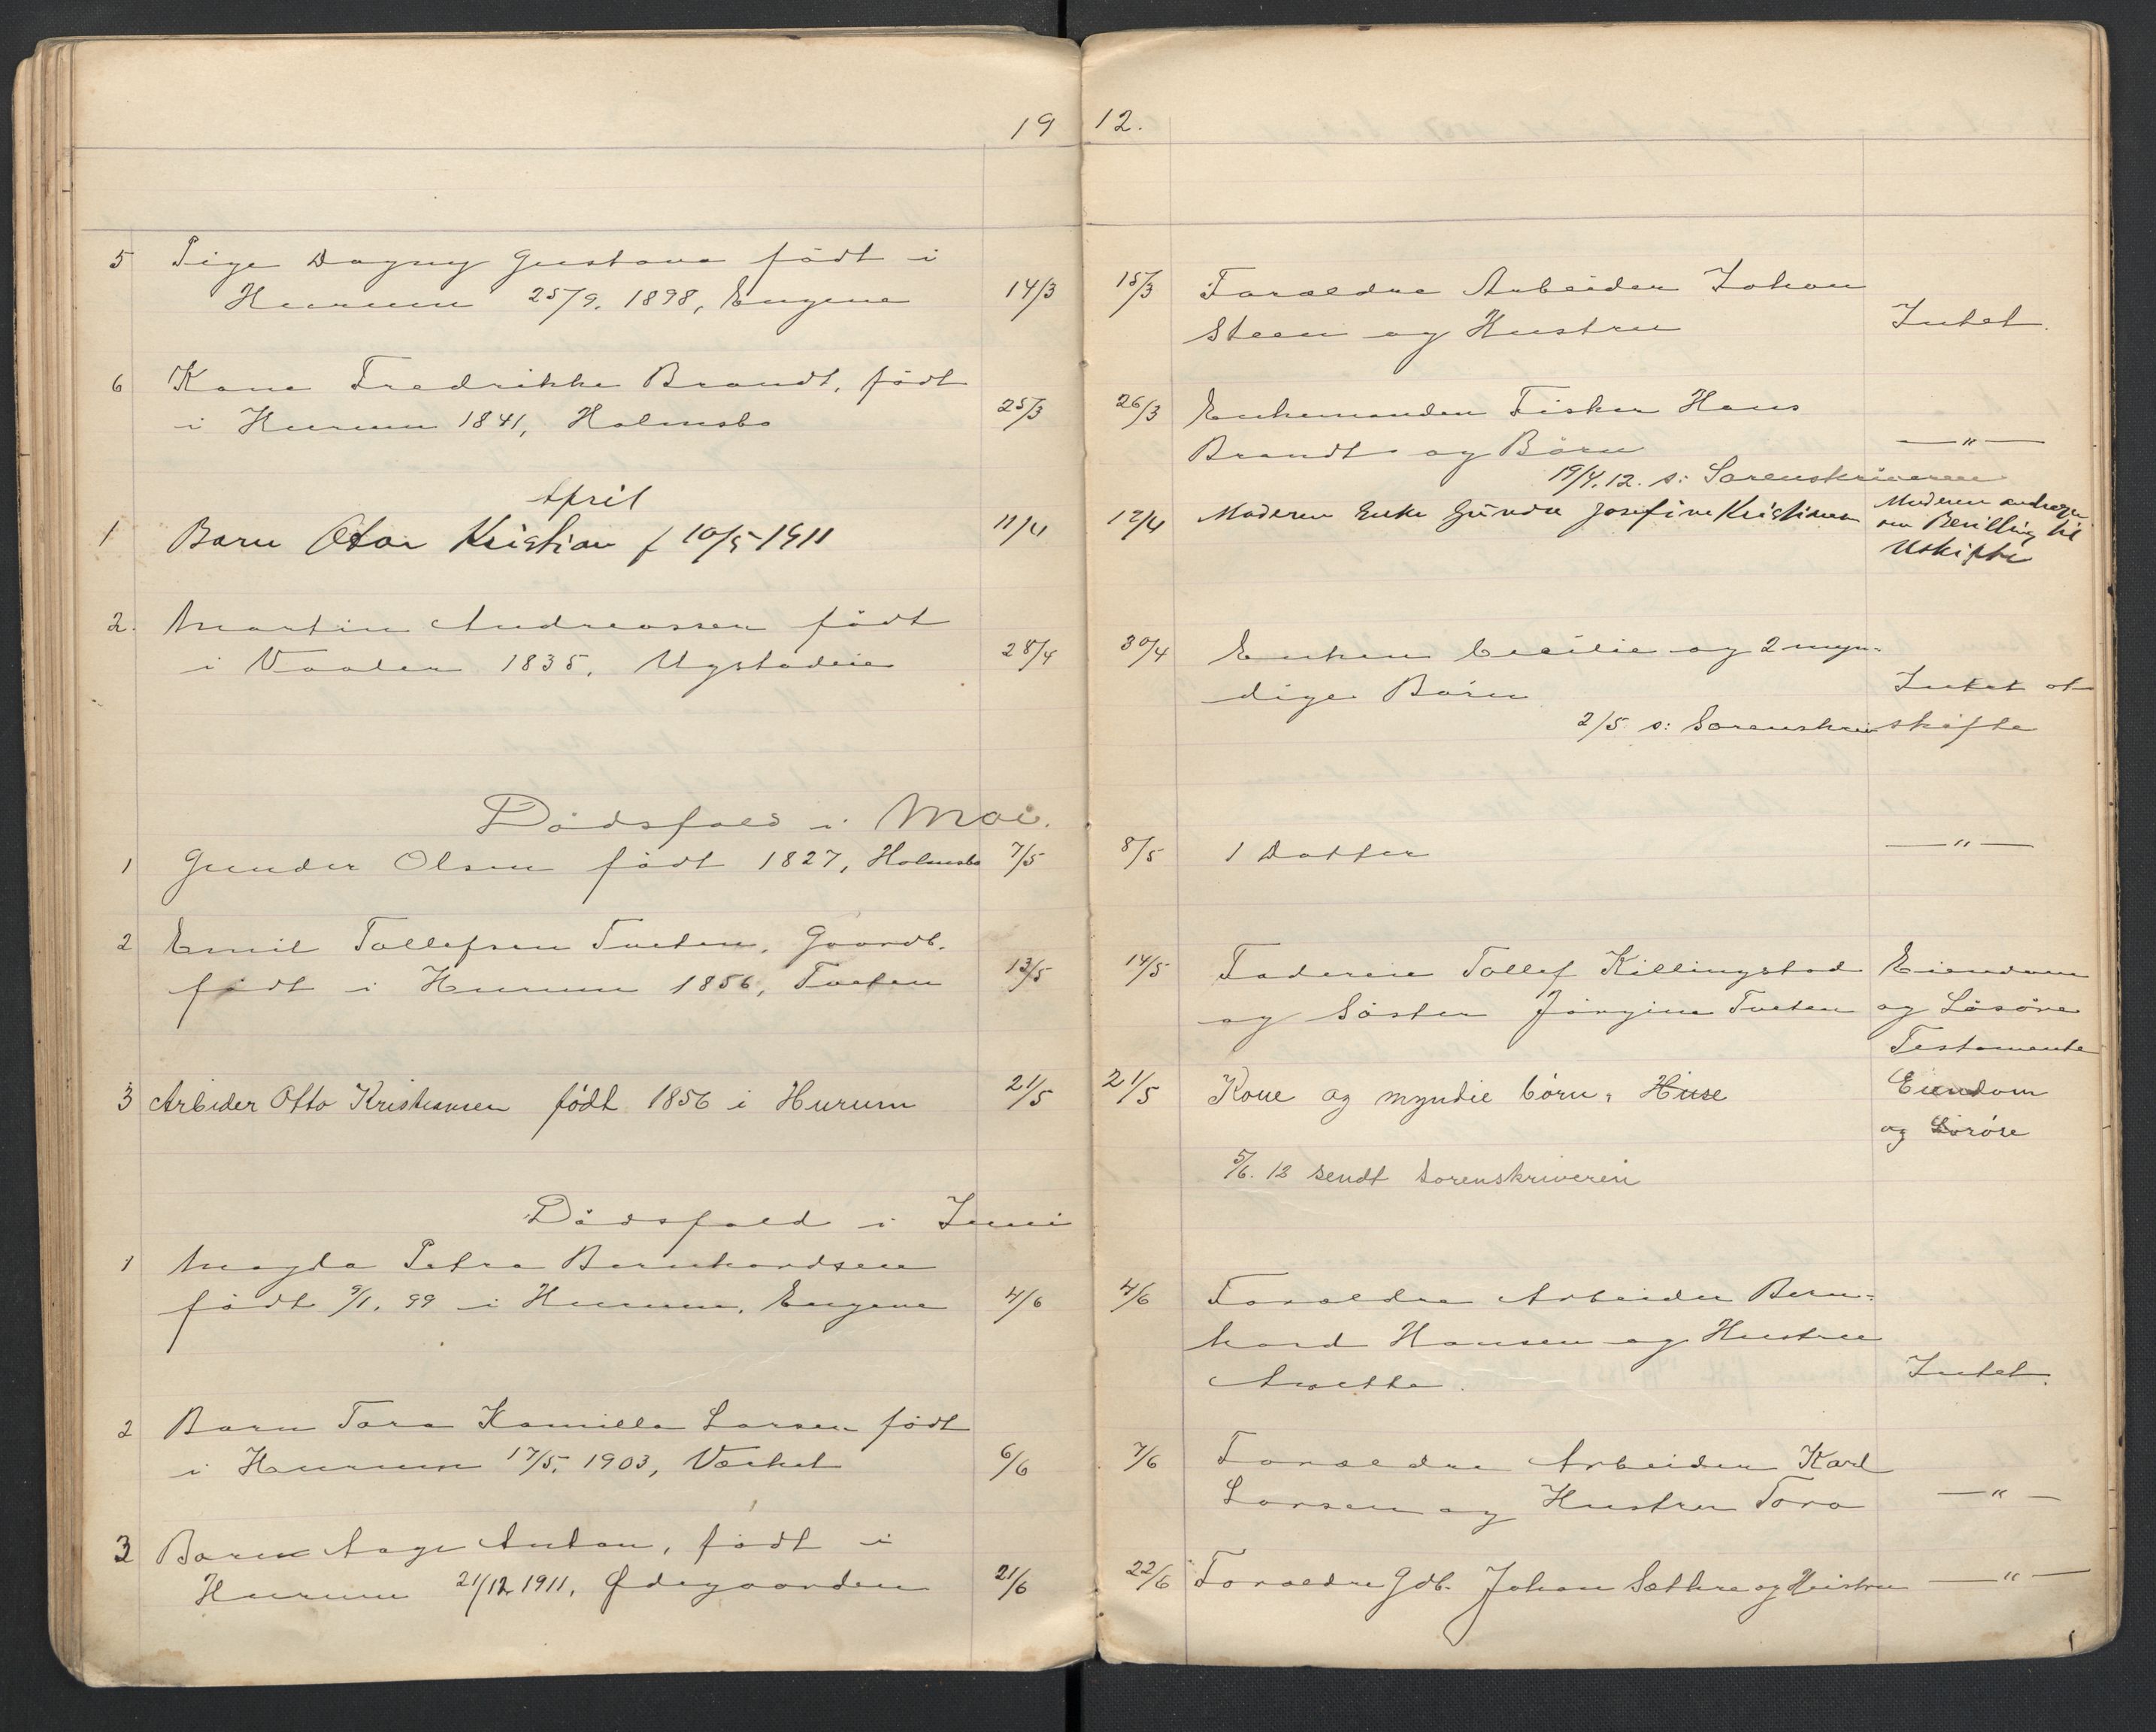 19 12.
5 Pige Dagny Gustava född i
Hurum 25/9. 1898, Engene 14/3
15/3 Foraeldre Arbeider Johan
Steen og Hustru Intet.
6 Kone Fredrikke Brandt, född
i Hurum 1841, Holmsbo 25/3
26/3 Enkemanden Fisker Hans
Brandt og Börn —"—
19/4.12. s: Sorenskriveren
April
1 Barn Otar Kristian f 10/5-1911 11/4
12/4 Moderen Enke Gunda Josefine Kristiansen Moderen andrager
om Bevilling til
Uskifte
2. Martin Andreassen födt
i Vaaler 1835, Ugstadeie 28/4
30/4 Enken Cecilie og 2 myn-
dige Börn Intet at
2/5 s: Sorenskriv skifte
Dödsfald i Mai.
1 Gunder Olsen födt 1827, Holmsbo 7/5
8/5 1 Datter —"—
2 Emil Tollefsen Tveten, Gaardb.
födt i Hurum 1856, Tveten 13/5
14/5 Faderen Tollef Killingstad Eiendom
og Söster Jörgine Tveten og Lösöre
Testamente
3 Arbider Otto Kristiansen födt 1856 i Hurum 21/5
21/5 Kone og myndie börn, Huse Eiendom
og
5/6. 12 sendt sorenskriveren
Dödsfald i Juni
1 Magda Petra Bernhardsen
födt 9/1. 99 i Hurum, Engene 4/6
4/6 Foraeldre Arbeider Bern-
hard Hansen og Hustru
Anette. Intet.
2 Barn Tora Kamilla Larsen födt
i Hurum 17/5. 1903, Verket 6/6
7/6 Foraeldre Arbeider Karl
Larsen og Hustru Tora —"—
3 Barn Aage Anton, födt i
Hurum 21/12 1911, Ødegaarden 21/6
22/6 Foraeldre Gdb. Johan Sæthre og Hustru —"—